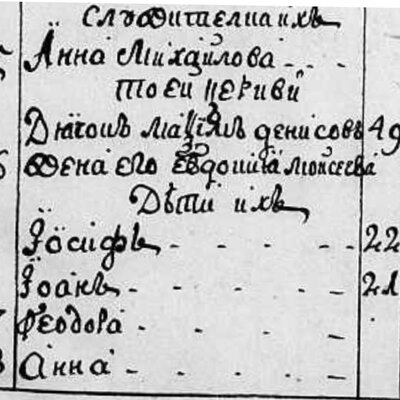 служителница ихъ
Анна Михайлова
тоеи церкви
Дьячокъ Маѯимъ Денисовъ 49
жена его Евдокиїа Моисеева
Дѣти ихъ
Їосифъ 22
Їоанъ 21
Ѳеодора
Анна